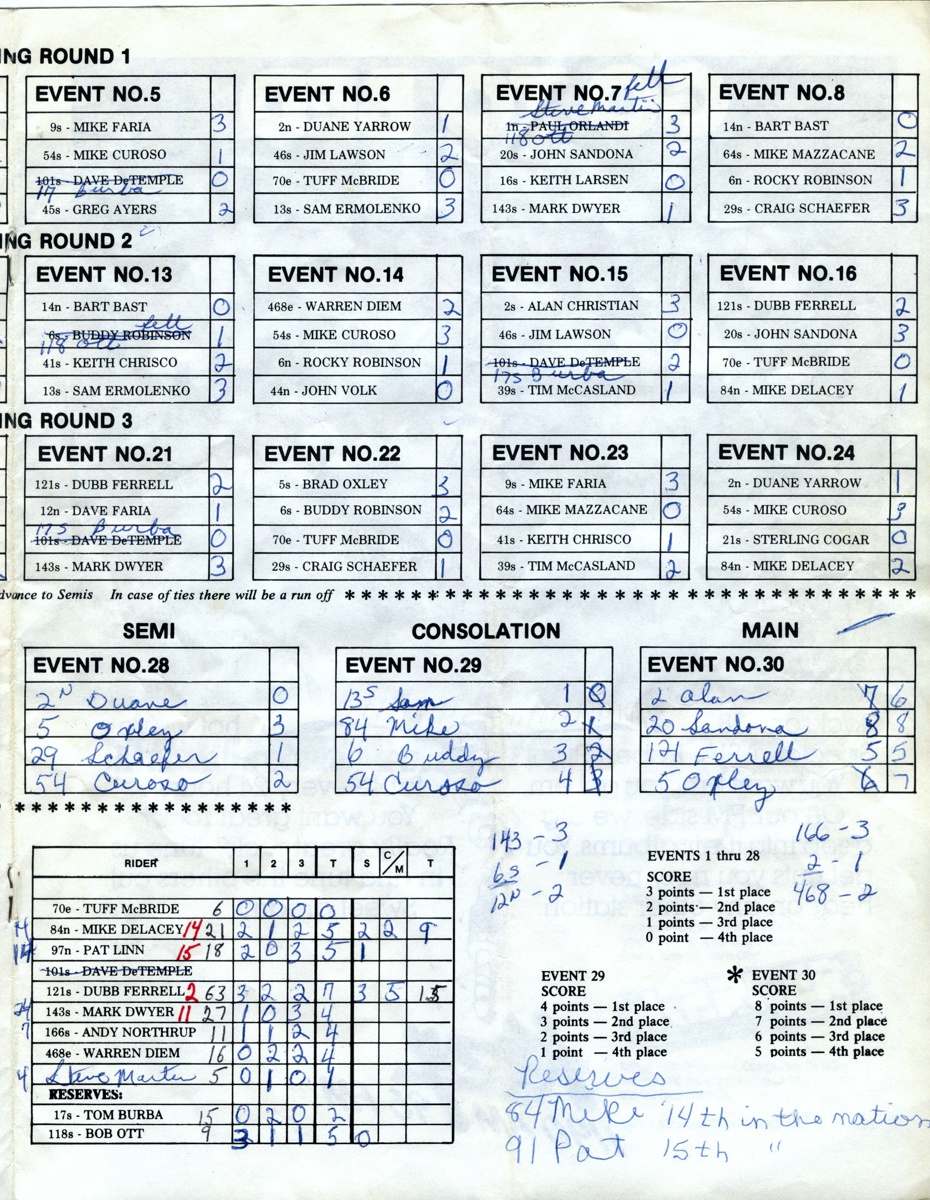 NG ROUND 1
EVENT NO.5
9s - MIKE FARIA 3
54s - MIKE CUROSO 1
101s - DAVE DeTEMPLE 0
17 Burba
45s - GREG AYERS 2
EVENT NO.6
2n - DUANE YARROW 1
46s - JIM LAWSON 2
70e - TUFF McBRIDE 0
13s - SAM ERMOLENKO 3
EVENT NO.7 fell
Steve Martin
1n - PAUL ORLANDI 3
118 Ott
20s - JOHN SANDONA 2
16s - KEITH LARSEN 0
143s - MARK DWYER 1
EVENT NO.8
14n - BART BAST 0
64s - MIKE MAZZACANE 2
6n - ROCKY ROBINSON 1
29s - CRAIG SCHAEFER 3
NG ROUND 2
EVENT NO.13
14n - BART BAST 0
fell
6s - BUDDY ROBINSON 1
118 Ott
41s - KEITH CHRISCO 2
13s - SAM ERMOLENKO 3
EVENT NO.14
468e - WARREN DIEM 2
54s - MIKE CUROSO 3
6n - ROCKY ROBINSON 1
44n - JOHN VOLK 0
EVENT NO.15
2s - ALAN CHRISTIAN 3
46s - JIM LAWSON 0
101s - DAVE DeTEMPLE 2
17S Burba
39s - TIM McCASLAND 1
EVENT NO.16
121s - DUBB FERRELL 2
20s - JOHN SANDONA 3
70e - TUFF McBRIDE 0
84n - MIKE DELACEY 1
NG ROUND 3
EVENT NO.21
121s - DUBB FERRELL 2
12n - DAVE FARIA 1
17S Burba
101s - DAVE DeTEMPLE 0
143s - MARK DWYER 3
EVENT NO.22
5s - BRAD OXLEY 3
6s - BUDDY ROBINSON 2
70e - TUFF McBRIDE 0
29s - CRAIG SCHAEFER 1
EVENT NO.23
9s - MIKE FARIA 3
64s - MIKE MAZZACANE 0
41s - KEITH CHRISCO 1
39s - TIM McCASLAND 2
EVENT NO.24
2n - DUANE YARROW 1
54s - MIKE CUROSO 3
21s - STERLING COGAR 0
84n - MIKE DELACEY 2
dvance to Semis In case of ties there will be a run off * * * * * * * * * * * * * * * * * * * * * * * * * * * * * * * * * * *
SEMI
EVENT NO.28
2N Duane 0
5 Oxley 3
29 Schaefer 1
54 Curoso 2
CONSOLATION
EVENT NO.29
13S Sam 1 0
84 Mike 2 1
6 Buddy 3 2
54 Curoso 4 3
MAIN
EVENT NO.30
2 Alan 7 6
20 Sandona 8 8
121 Ferrell 5 5
5 Oxley 6 7
* * * * * * * * * * * * * * * *
RIDER 1 2 3 T S C/M T
70e - TUFF McBRIDE 6 0 0 0 0
84n - MIKE DELACEY 14 21 2 1 2 5 2 2 9
97n - PAT LINN 15 18 2 0 3 5 1
101s - DAVE DeTEMPLE
121s - DUBB FERRELL 2 63 3 2 2 7 3 5 15
143s - MARK DWYER 11 27 1 0 3 4
166s - ANDY NORTHRUP 11 1 1 2 4
468e - WARREN DIEM 16 0 2 2 4
4 Steve Martin 5 0 1 0 1
RESERVES:
17s - TOM BURBA 15 0 2 0 2
118s - BOB OTT 9 3 1 1 5 0
143 - 3
6S - 1
12N - 2
166 - 3
2 - 1
468 - 2
EVENTS 1 thru 28
SCORE
3 points — 1st place
2 points — 2nd place
1 points — 3rd place
0 point — 4th place
EVENT 29
SCORE
4 points — 1st place
3 points — 2nd place
2 points — 3rd place
1 point — 4th place
* EVENT 30
SCORE
8 points — 1st place
7 points — 2nd place
6 points — 3rd place
5 points — 4th place
Reserves
84 Mike 14th in the nation
91 Pat 15th "